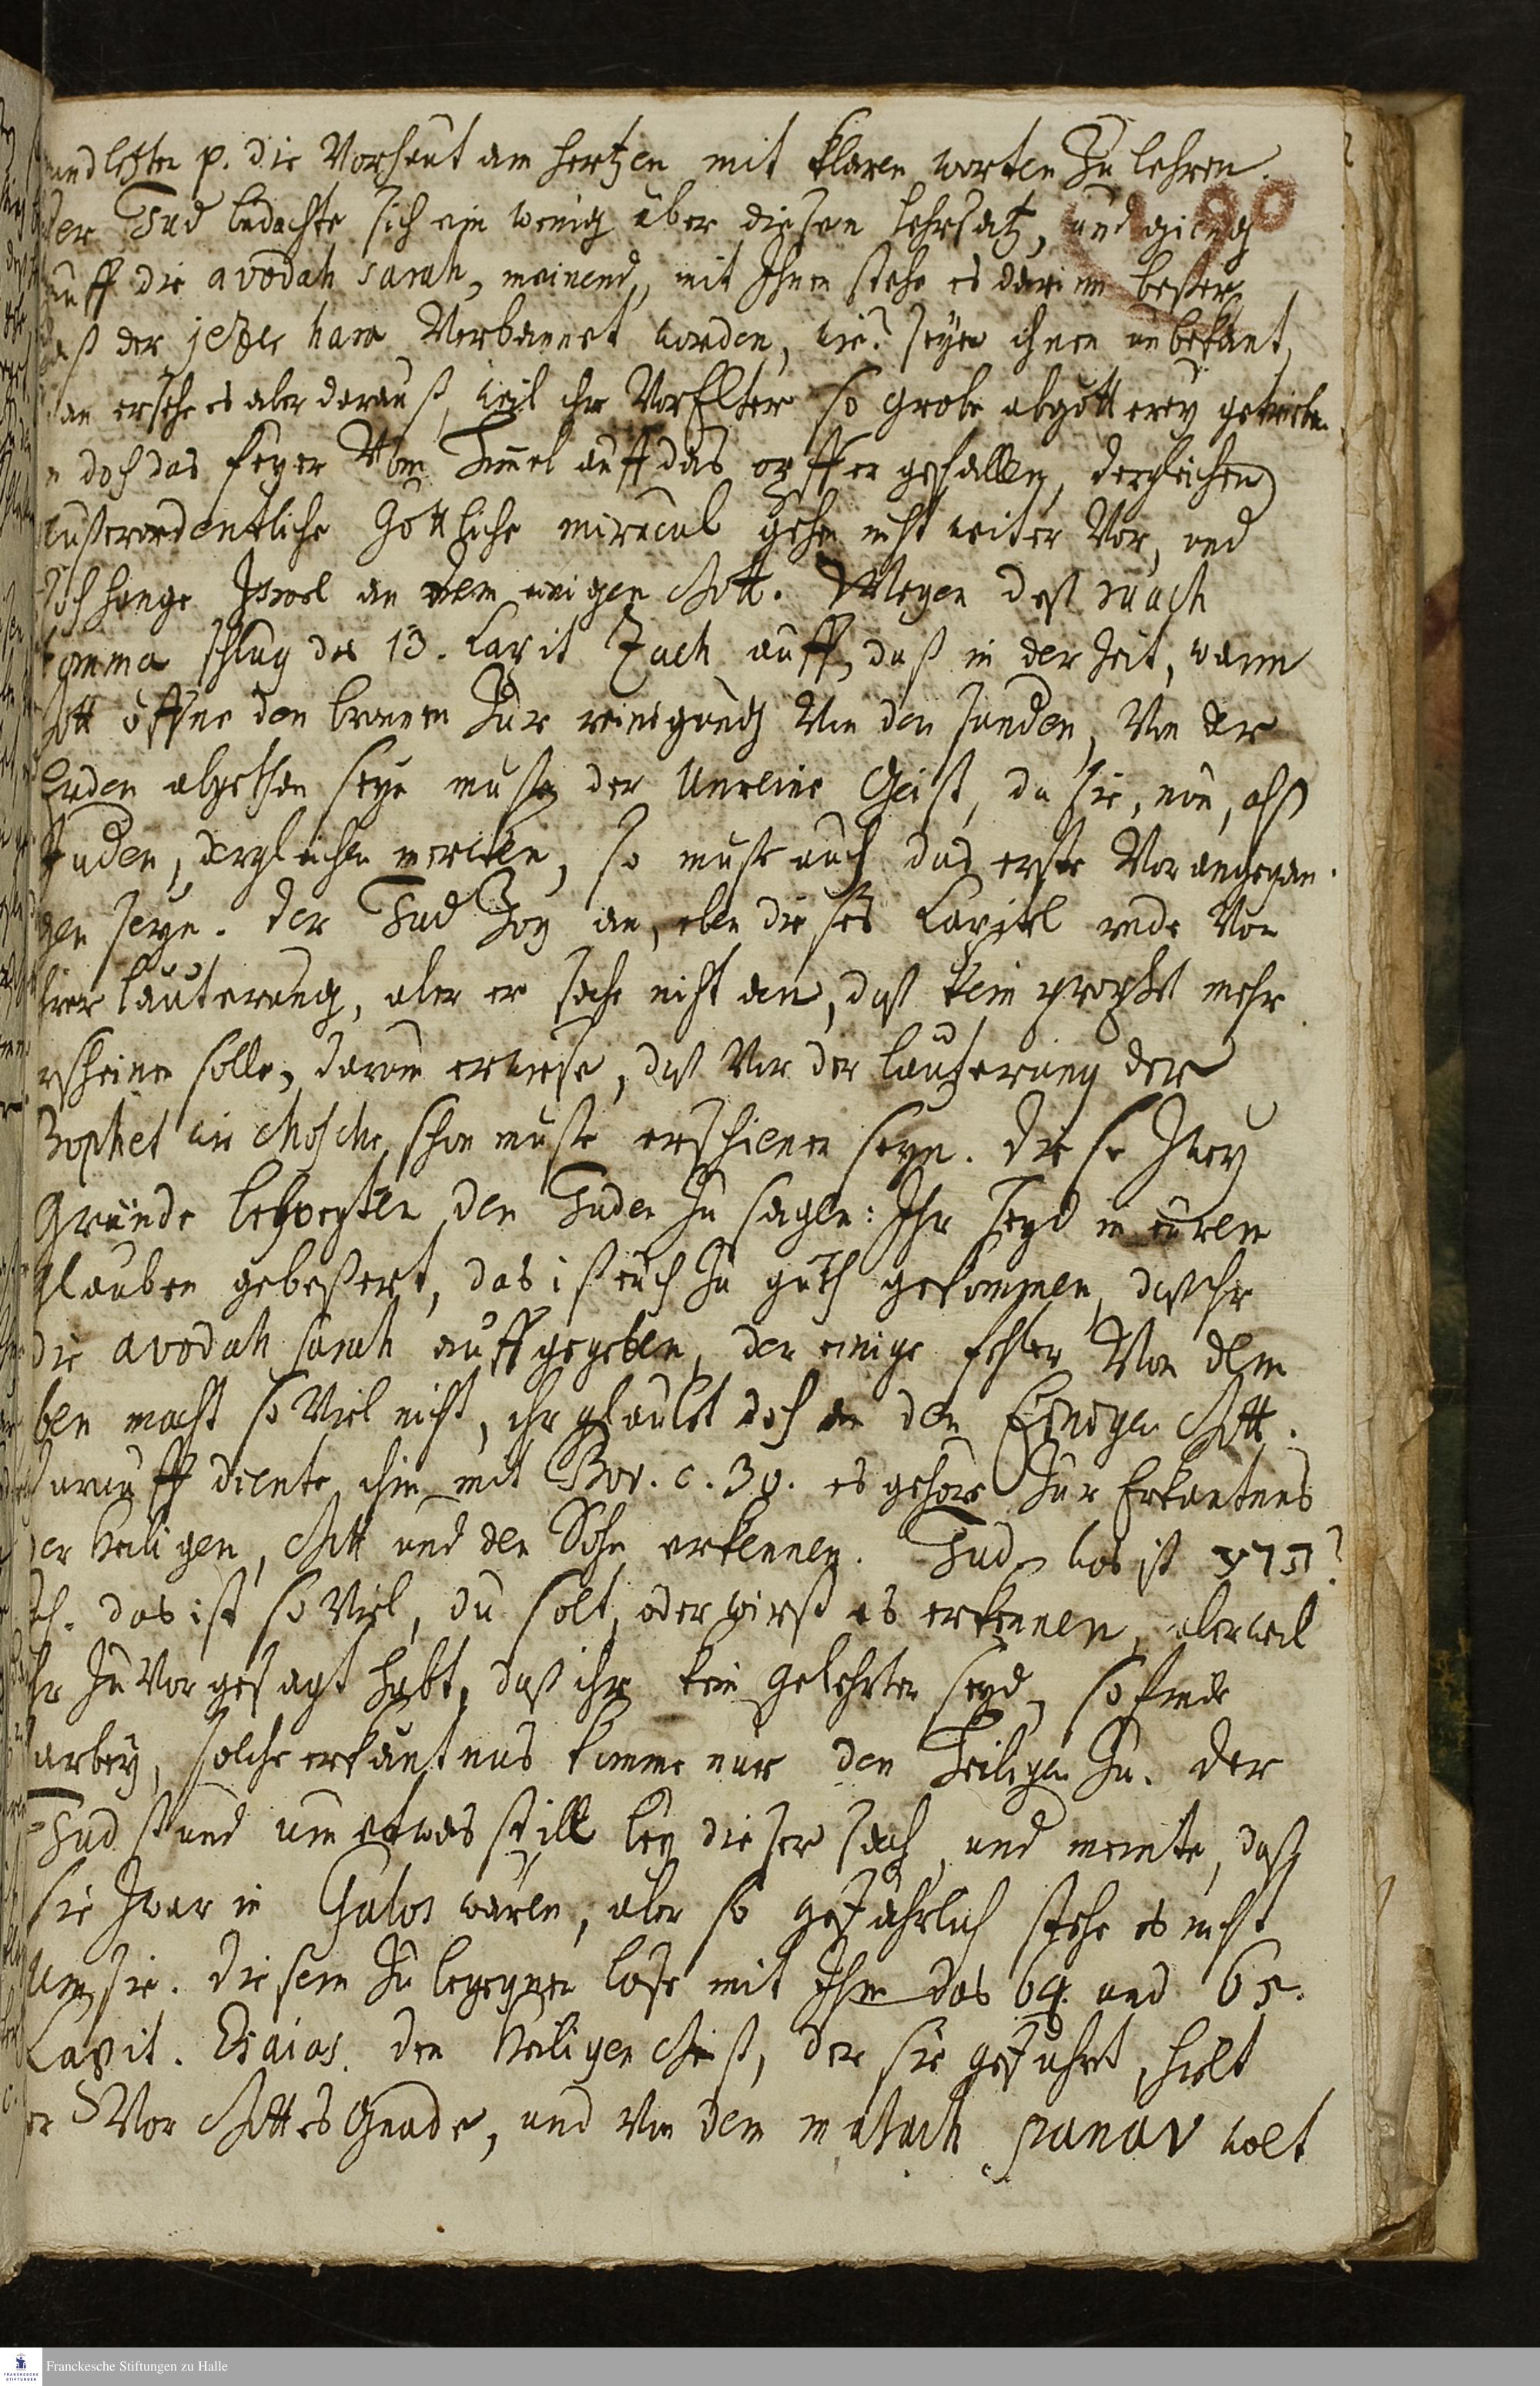 und letzten p. die Vorhaut am Hertzen mit klaren worten zu lehren.
190
der Jud bedachte sich ein wenig über diesen Lehrsatz, und gieng
auff die avodah sarah, meinend, mit Ihnen stehe es darinn beßer,
daß der jezer hara Verbannet worden, wie? seye ihnen unbekant,
man ersehe es aber darauß, weil ihr VorElter so grobe abgötterey getrieben
doch das feyer Vom Himel auff das opffer gefallen, dergleichen
außerordentliche Göttliche miracul gehen nicht weiter Vor, und
doch hange Israel an dem einigen Gott. Wegen deß ruach
tomma schlug das 13. Capit Zach auff, daß in der Zeit, wann
Gott öffne den bronnen zur reinigung Von den sünden, Von der
Erden abgethan seyn muße der Unreine Geist, da sie, nun, alß
Juden, dergleichen mercken, so muße auch das erste Vorangegan-
gen seyn. der Jud zog an, eben dieses Capitel rede Von
ihrer läuterung, aber er sahe nicht an, daß kein prophet mehr
erscheinen solle, darum erwiese, daß Vor der läuterung der
Prophet wie Mosche schon muße erschienen seyn. diese Zwey
Gründe bewegten den Juden zu sagen: Ihr seyd in eurem
glauben gebeßert, das ist euch zu guth gekommen, daß ihr
die avodah sarah auffgegeben, der einige fehler Von dem
ben macht so Viel nicht, ihr glaubt doch an den Einigen Gott.
darauff diente ihm mit Prov. c. 30. es gehöre zur Erkantnus
der heiligen, Gott und den Sohn erkennen. Jud, was ist תדע?
Ich. das ist so Viel, du solt, oder wirst es erkennen, aber weil
ihr zuvor gesagt habt, daß ihr kein gelehrter seyd, so finde
darbey, solche erkäntnus komme nur den Heiligen zu. der
Jud stund um etwas still bey dieser sach, und meinte, daß
sie zwar in Galos wären, aber so gefährlich stehe es nicht
um sie. diesem zu begegnen lase mit Ihm das 64. und 65.
Capit. Esaias. den Heiligen Geist, der sie geführt, hielt
er Vor Gottes Gnade, und Von dem malach panav wolt
Franckesche Stiftungen zu Halle